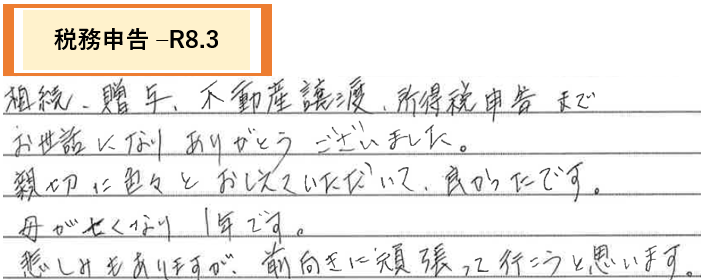 税務申告 –R8.3
相続、贈与、不動産譲渡、所得税申告 まで
お世話になり ありがとう ございました。
親切に色々と おしえていただいて、良かったです。
母が亡くなり 1年です。
悲しみもありますが、前向きに頑張って行こうと思います。